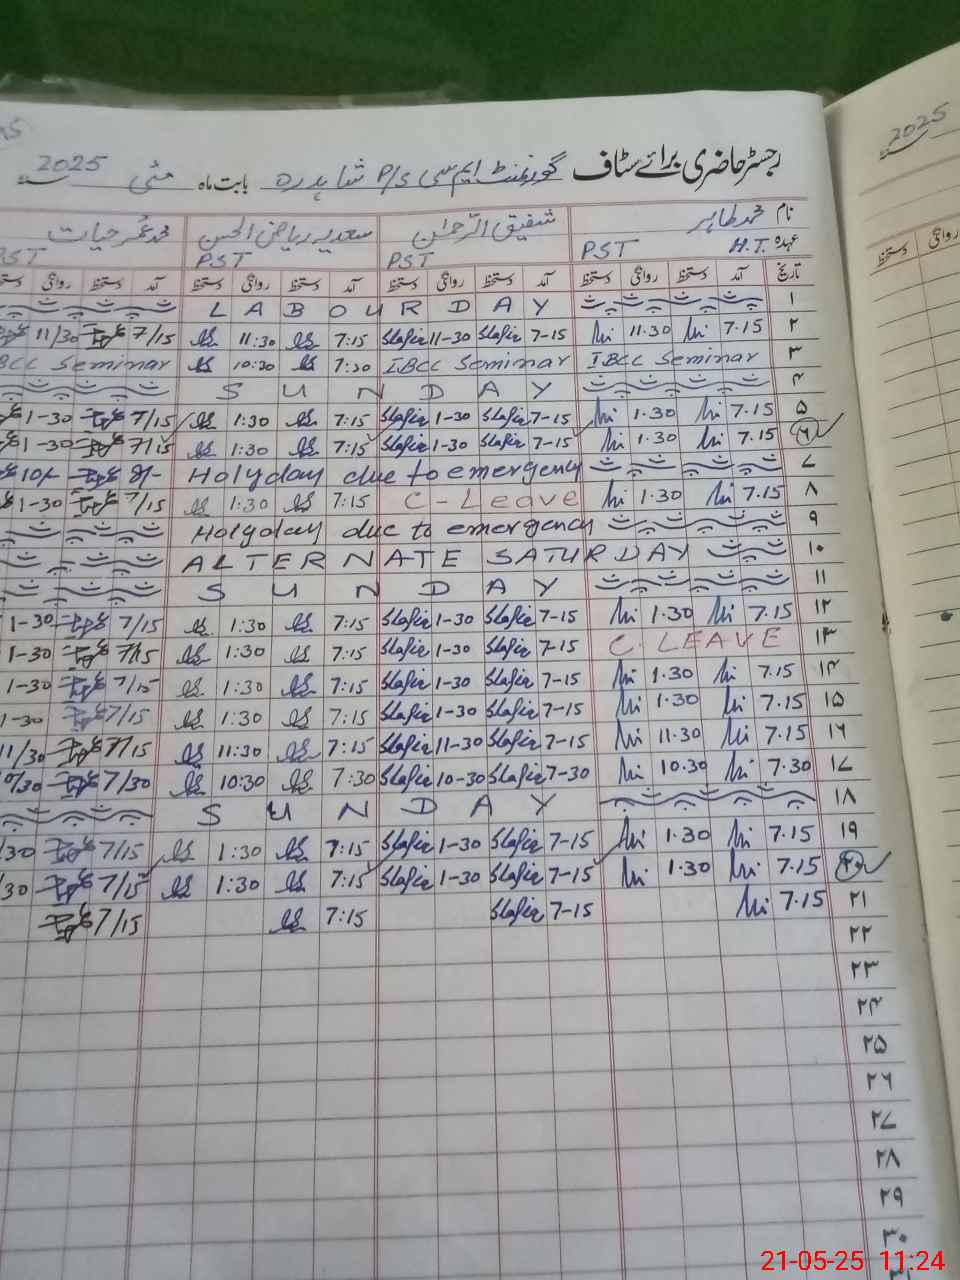 2025
رجسٹر حاضری برائے سٹاف گورنمنٹ ایم سی P/S شاہدرہ بابت ماہ مئی 2025
نام محمد طاہر شفیق الرحمٰن سعدیہ ریاض الحسن محمد عمر حیات
عہدہ H.T. PST PST PST PST
تاریخ آمد دستخط روانگی دستخط آمد دستخط روانگی دستخط آمد دستخط روانگی دستخط آمد دستخط روانگی دستخط
۱ LABOUR DAY
۲ 7.15 11.30 7-15 Shafiq 11-30 Shafiq 7:15 11:30 7/15 11/30
۳ IBCC Seminar IBCC Seminar 7:20 10:30 Seminar
۴ SUNDAY
۵ 7.15 1.30 7-15 Shafiq 1-30 Shafiq 7:15 1:30 7/15 1-30
۶ 7.15 1.30 7-15 Shafiq 1-30 Shafiq 7:15 1:30 7/15 1-30
۷ Holyday due to emergency 8/- 10/-
۸ 7.15 1.30 C-Leave 7:15 1:30 7/15 1-30
۹ Holyday due to emergency
۱۰ ALTERNATE SATURDAY
۱۱ SUNDAY
۱۲ 7.15 1.30 7-15 Shafiq 1-30 Shafiq 7:15 1:30 7/15 1-30
۱۳ C. LEAVE 7-15 Shafiq 1-30 Shafiq 7:15 1:30 7/15 1-30
۱۴ 7.15 1.30 7-15 Shafiq 1-30 Shafiq 7:15 1:30 7/15 1-30
۱۵ 7.15 1.30 7-15 Shafiq 1-30 Shafiq 7:15 1:30 7/15 1-30
۱۶ 7.15 11.30 7-15 Shafiq 11-30 Shafiq 7:15 11:30 7/15 11/30
۱۷ 7.30 10.30 7-30 Shafiq 10-30 Shafiq 7:30 10:30 7/30
۱۸ SUNDAY
۱۹ 7.15 1.30 7-15 Shafiq 1-30 Shafiq 7:15 1:30 7/15
۲۰ 7.15 1.30 7-15 Shafiq 1-30 Shafiq 7:15 1:30 7/15
۲۱ 7.15 7-15 Shafiq 7:15 7/15
۲۲
۲۳
۲۴
۲۵
۲۶
۲۷
۲۸
۲۹
۳۰
2025
روانگی دستخط
21-05-25 11:24